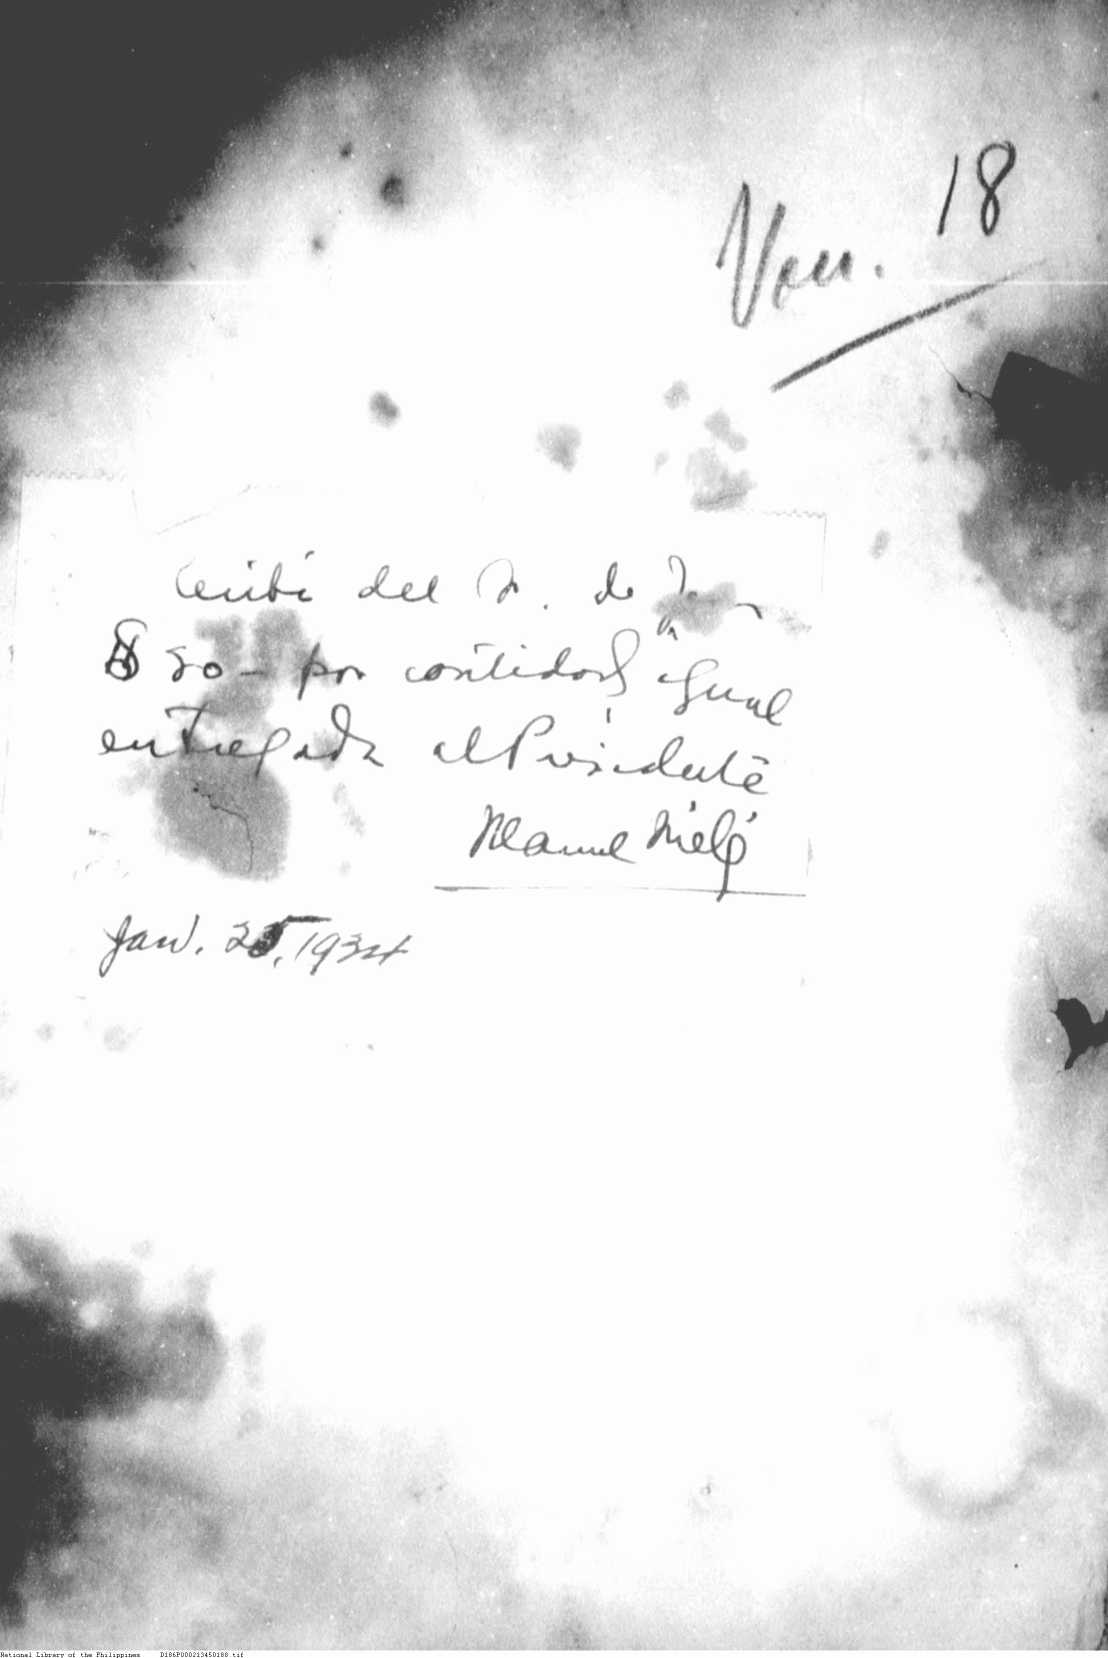 18
Vou.
Recibí del Sr. de
50 — por cantidad igual
entregada al Presidente
Manuel
Jan. 25, 1934
National Library of the Philippines D186P000213450188.tif